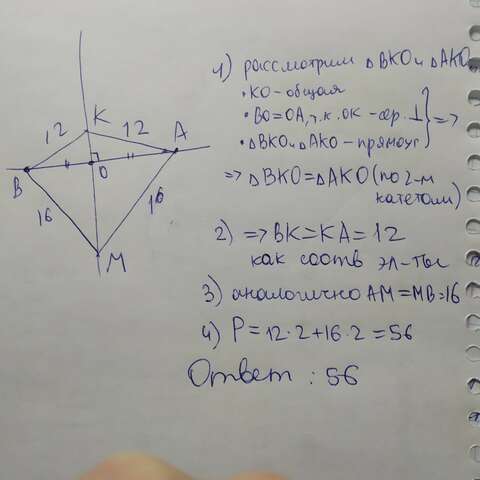 K
12
12
A
B
O
16
16
M
1) рассмотрим △BKO и △AKO
• KO - общая
• BO = OA, т.к. OK - сер. ⊥
• △BKO и △AKO - прямоуг } =>
=> △BKO = △AKO (по 2-м
катетам)
2) => BK = KA = 12
как соотв эл-ты
3) аналогично AM = MB = 16
4) P = 12·2 + 16·2 = 56
Ответ : 56